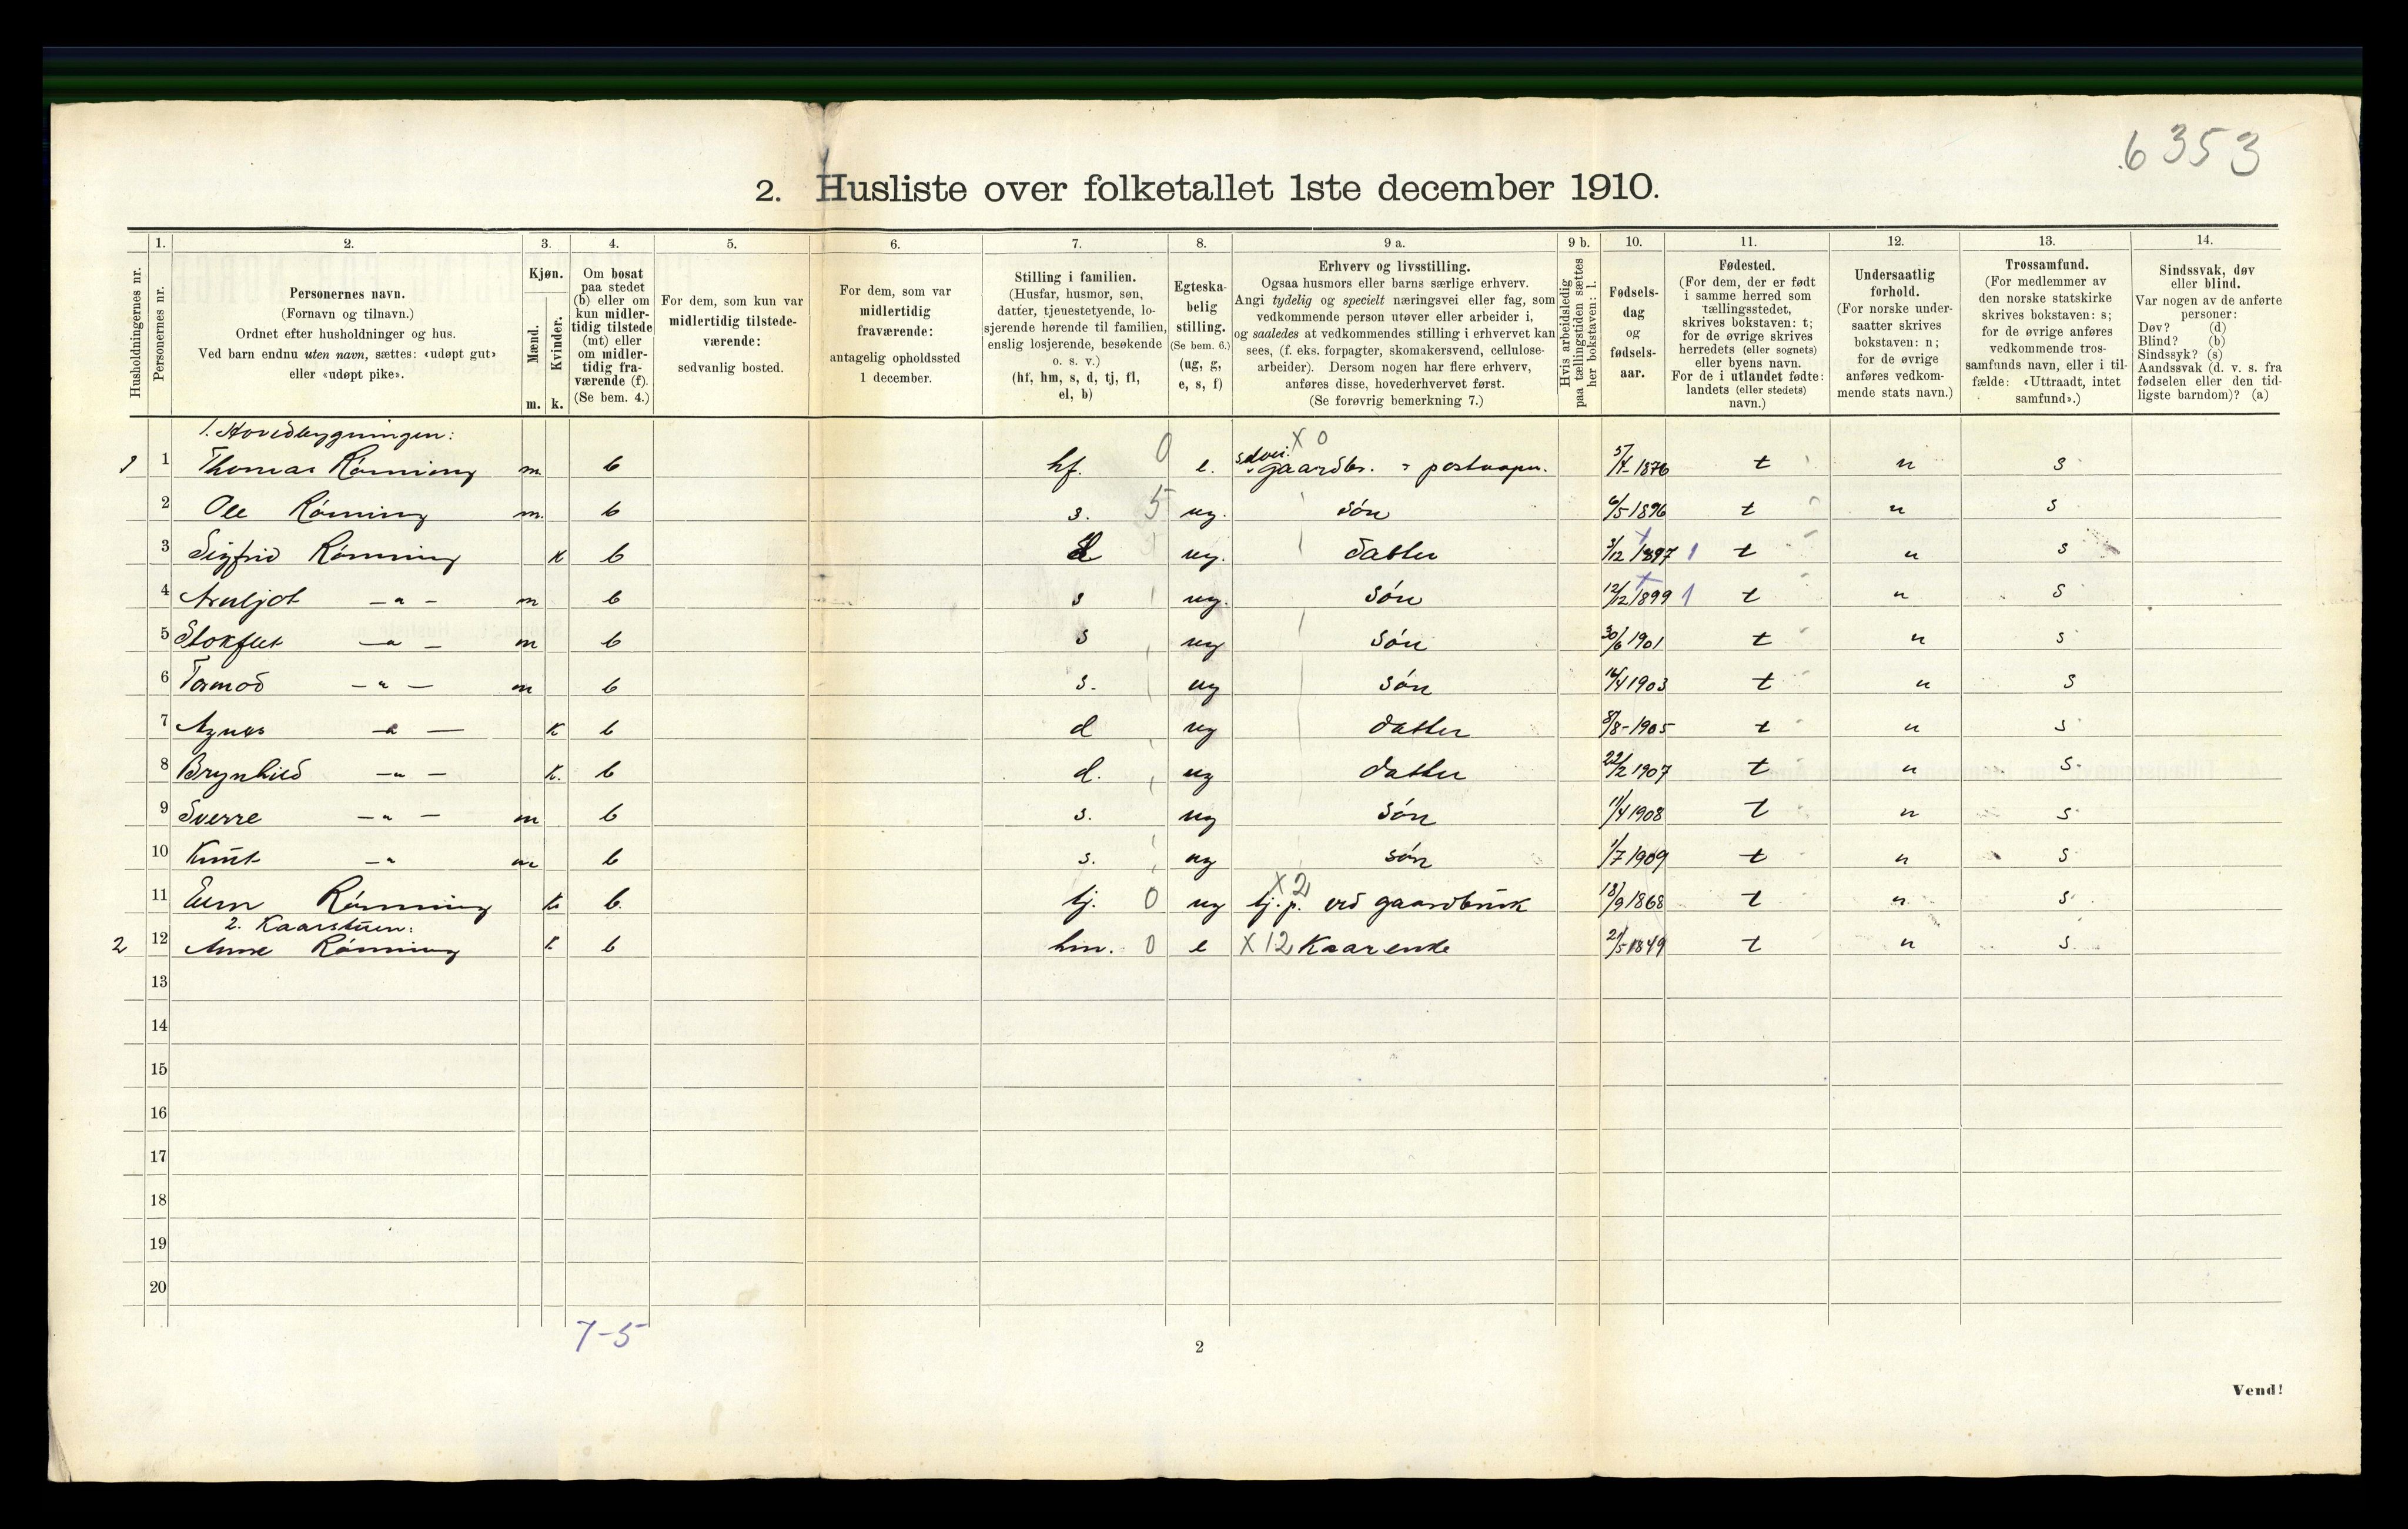 6353
2. Husliste over folketallet 1ste december 1910.
Husholdningernes nr.
1. Personernes nr.
2. Personernes navn. (Fornavn og tilnavn.) Ordnet efter husholdninger og hus. Ved barn endnu uten navn, sættes: «udøpt gut» eller «udøpt pike».
3. Kjøn. Mænd. m. Kvinder. k.
4. Om bosat paa stedet (b) eller om kun midlertidig tilstede (mt) eller om midlertidig fraværende (f). (Se bem. 4.)
5. For dem, som kun var midlertidig tilstedeværende: sedvanlig bosted.
6. For dem, som var midlertidig fraværende: antagelig opholdssted 1 december.
7. Stilling i familien. (Husfar, husmor, søn, datter, tjenestetyende, losjerende hørende til familien, enslig losjerende, besøkende o. s. v.) (hf, hm, s, d, tj, fl, el, b)
8. Egteskabelig stilling. (Se bem. 6.) (ug, g, e, s, f)
9 a. Erhverv og livsstilling. Ogsaa husmors eller barns særlige erhverv. Angi tydelig og specielt næringsvei eller fag, som vedkommende person utøver eller arbeider i, og saaledes at vedkommendes stilling i erhvervet kan sees, (f. eks. forpagter, skomakersvend, cellulosearbeider). Dersom nogen har flere erhverv, anføres disse, hovederhvervet først. (Se forøvrig bemerkning 7.)
9 b. Hvis arbeidsledig paa tællingstiden sættes her bokstaven: l.
10. Fødselsdag og fødselsaar.
11. Fødested. (For dem, der er født i samme herred som tællingsstedet, skrives bokstaven: t; for de øvrige skrives herredets (eller sognets) eller byens navn. For de i utlandet fødte: landets (eller stedets) navn.)
12. Undersaatlig forhold. (For norske undersaatter skrives bokstaven: n; for de øvrige anføres vedkommende stats navn.)
13. Trossamfund. (For medlemmer av den norske statskirke skrives bokstaven: s; for de øvrige anføres vedkommende trossamfunds navn, eller i tilfælde: «Uttraadt, intet samfund».)
14. Sindssvak, døv eller blind. Var nogen av de anførte personer: Døv? (d) Blind? (b) Sindssyk? (s) Aandssvak (d. v. s. fra fødselen eller den tidligste barndom)? (a)
1. Hovedbygningen:
1 1 Thomas Rönning m. b hf. 0 e. X 0 selvei. gaardbr. postaapn. 1876 t n s
2 Ole Rönning m. b s. 5 ug. Sön 6/5 1896 t n s
3 Sigfrid Rönning k b d ug. datter 3/12 1897 1 t n s
4 Arnljot — " — m b s ug. Sön 12/12 1899 1 t n s
5 Stokflet — " — m b s ug Sön 30/6 1901 t n s
6 Tormod — " — m b s. ug Sön 16/4 1903 t n s
7 Agnes — " — k b d ug datter 8/8-1905 t n s
8 Brynhild — " — k. b d. ug datter 22/2 1907 t n s
9 Sverre — " — m b s. ug Sön 11/4 1908 t n s
10 Knut — " m b s. ug sön 1/7 1909 t n s
11 Rönning k b. tj. 0 ug X 2 tj.p. ved gaardbruk 18/9 1868 t n s
2. Kaarstuen:
2 12 Anne Rönning k b hm. 0 e X 12 Kaarenke 21/5 1849 t n s
13
14
15
16
17
18
19
20
7-5
2
Vend!